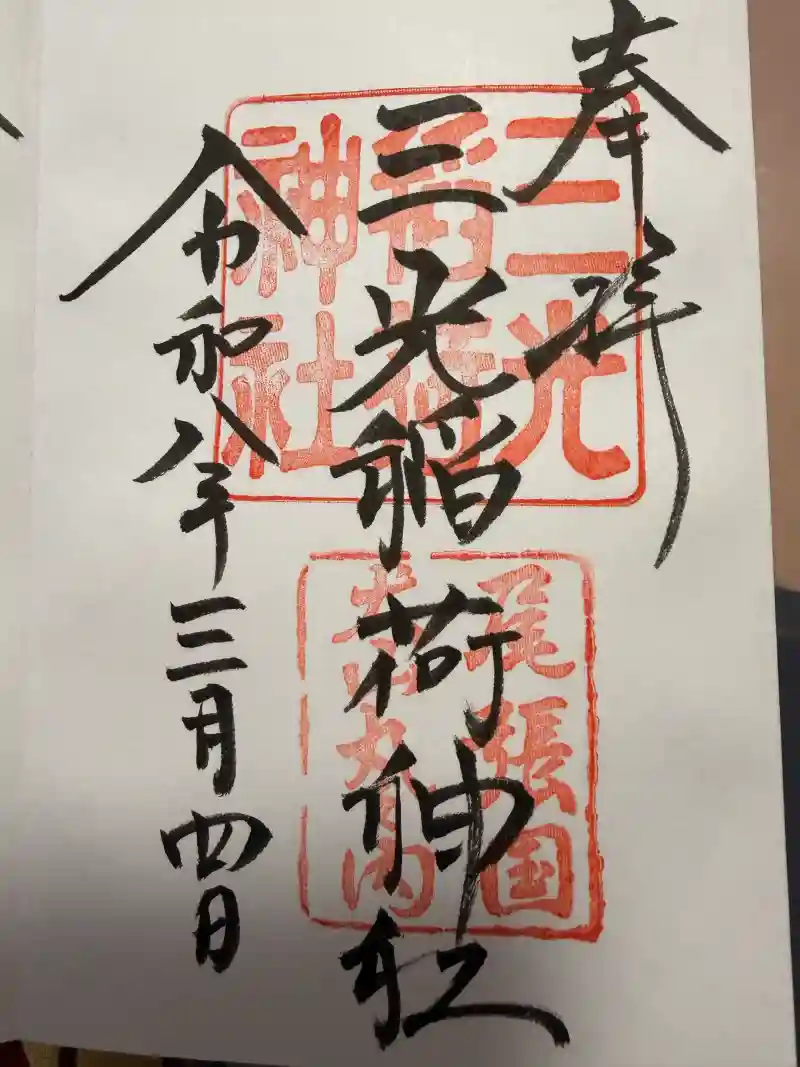 奉拝
三光稲荷神社
令和八年三月四日
三光
稲荷
神社
尾張国
犬山丸内